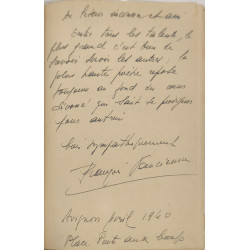 Entre tous les talents, le
plus grand c'est bien de
savoir servir les autres; la
plus haute poésie repose
toujours au fond du cœur
qui sait se prodiguer
pour autrui
Bien sympathiquement
Avignon Avril 1940
Place Pont aux bœufs